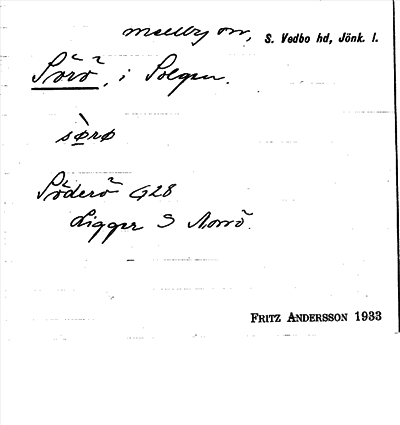 Mellby sn, S. Vedbo hd, Jönk. l.
Sörö, i Solgen.
sø̀rø
Söderö G28
Ligger S Norrö.
FRITZ ANDERSSON 1933